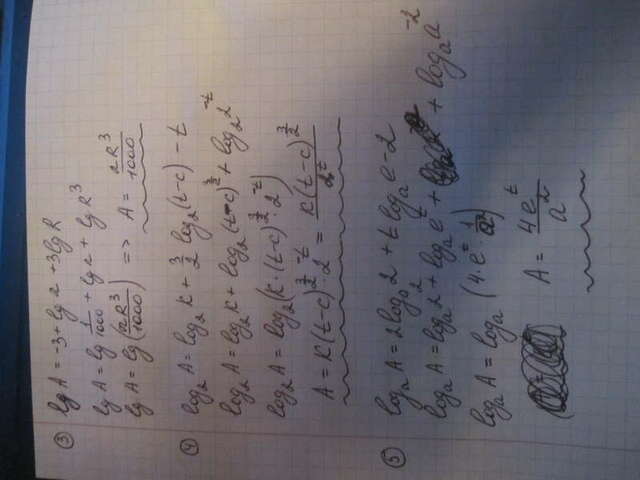 ③ lg A = -3 + lg r + 3 lg R
lg A = lg 1/1000 + lg r + lg R³
lg A = lg (rR³/1000) => A = rR³/1000
④ log₂ A = log₂ K + 3/2 log₂ (t-c) - t
log₂ A = log₂ K + log₂ (t-c)^(3/2) + log₂ 2^(-t)
log₂ A = log₂ (K · (t-c)^(3/2) · 2^(-t))
A = K(t-c)^(3/2) · 2^(-t) = K(t-c)^(3/2) / 2^t
⑤ logₐ A = 2 logₐ 2 + t logₐ e - 2
logₐ A = logₐ 2² + logₐ e^t + logₐ a^(-2)
logₐ A = logₐ (4 · e^t · 1/a²)
A = 4e^t / a²